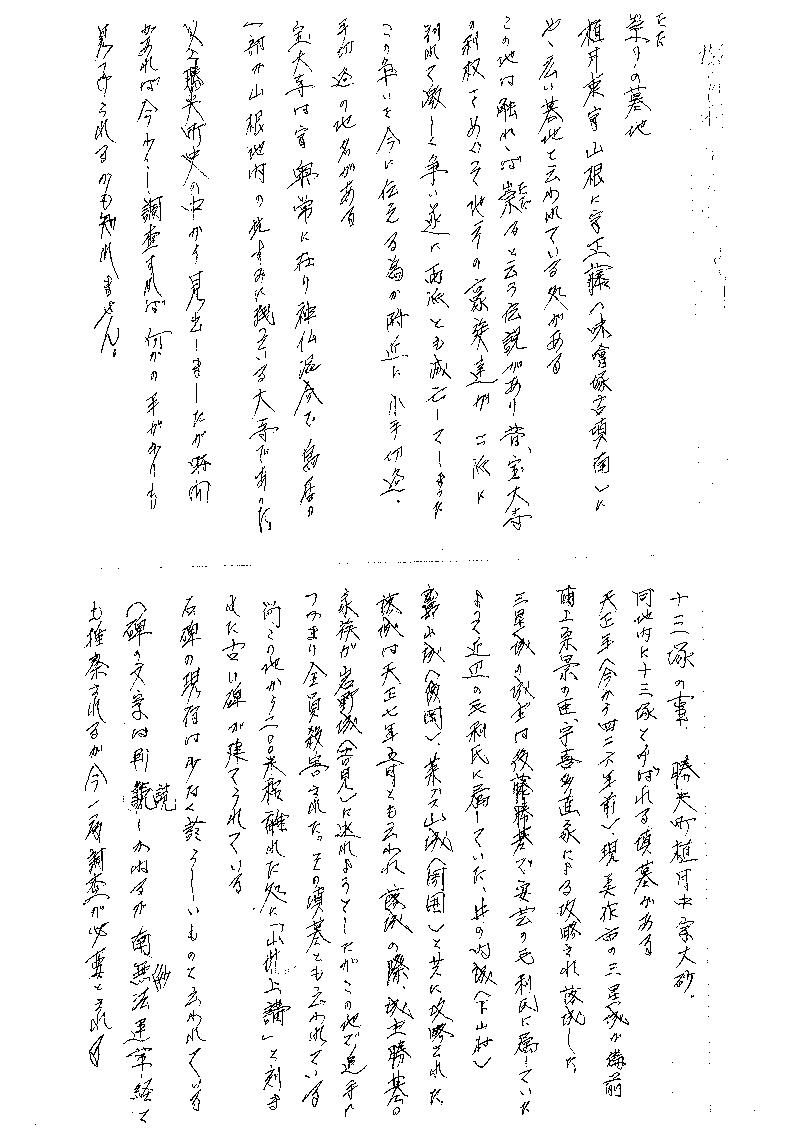 たた
祟りの墓地
植月東字山根に字王藤(味噌塚古墳南)に
やゝ広い墓地と云われている処がある
この地は触れゝば祟ると云う伝説があり昔、宝大寺
の利権をめぐって地元の豪族達が二派に
別れて激しく争い遂に両派とも滅亡してしまった
この争いを今に伝える為か附近に小手切逧、
手切逧の地名がある
宝大寺は字奥常に在り神仏混合で鳥居の
一部が山根地内の片すみに残っている大寺であった。
以上勝央町史の中から見出しましたが時間
があれば今少し調査すれば何かの手がかりも
見つけられるかも知れません。
十三塚の事 勝央町植月中字大砂。
同地内に十三塚と呼ばれる墳墓がある
天正年(今から四二六年前)、現美作市の三星城が備前
浦上宗景の臣、宇喜多直家による攻略され落城した。
三星城の城主は後藤勝基で安芸の毛利氏に属していた
よって近辺の毛利氏に属していた、井の内城(下山村)
鷲山城(後岡)、茶臼山城(周囲)と共に攻略された
落城は天正七年五月とも云われ落城の際、城主勝基の
家族が岩野城(吉見)に逃れようとしたがこの地で追手に
つかまり全員殺害された。その墳墓とも云われている
尚この地から二〇〇米程離れた処に「山井上講」と刻ま
れた古い碑が建てられている
石碑の現存は少なく珍らしいものと云われている
(碑の文字は判読しかねるが南無妙法蓮華経で
も推察されるが今一層調査が必要とされる)